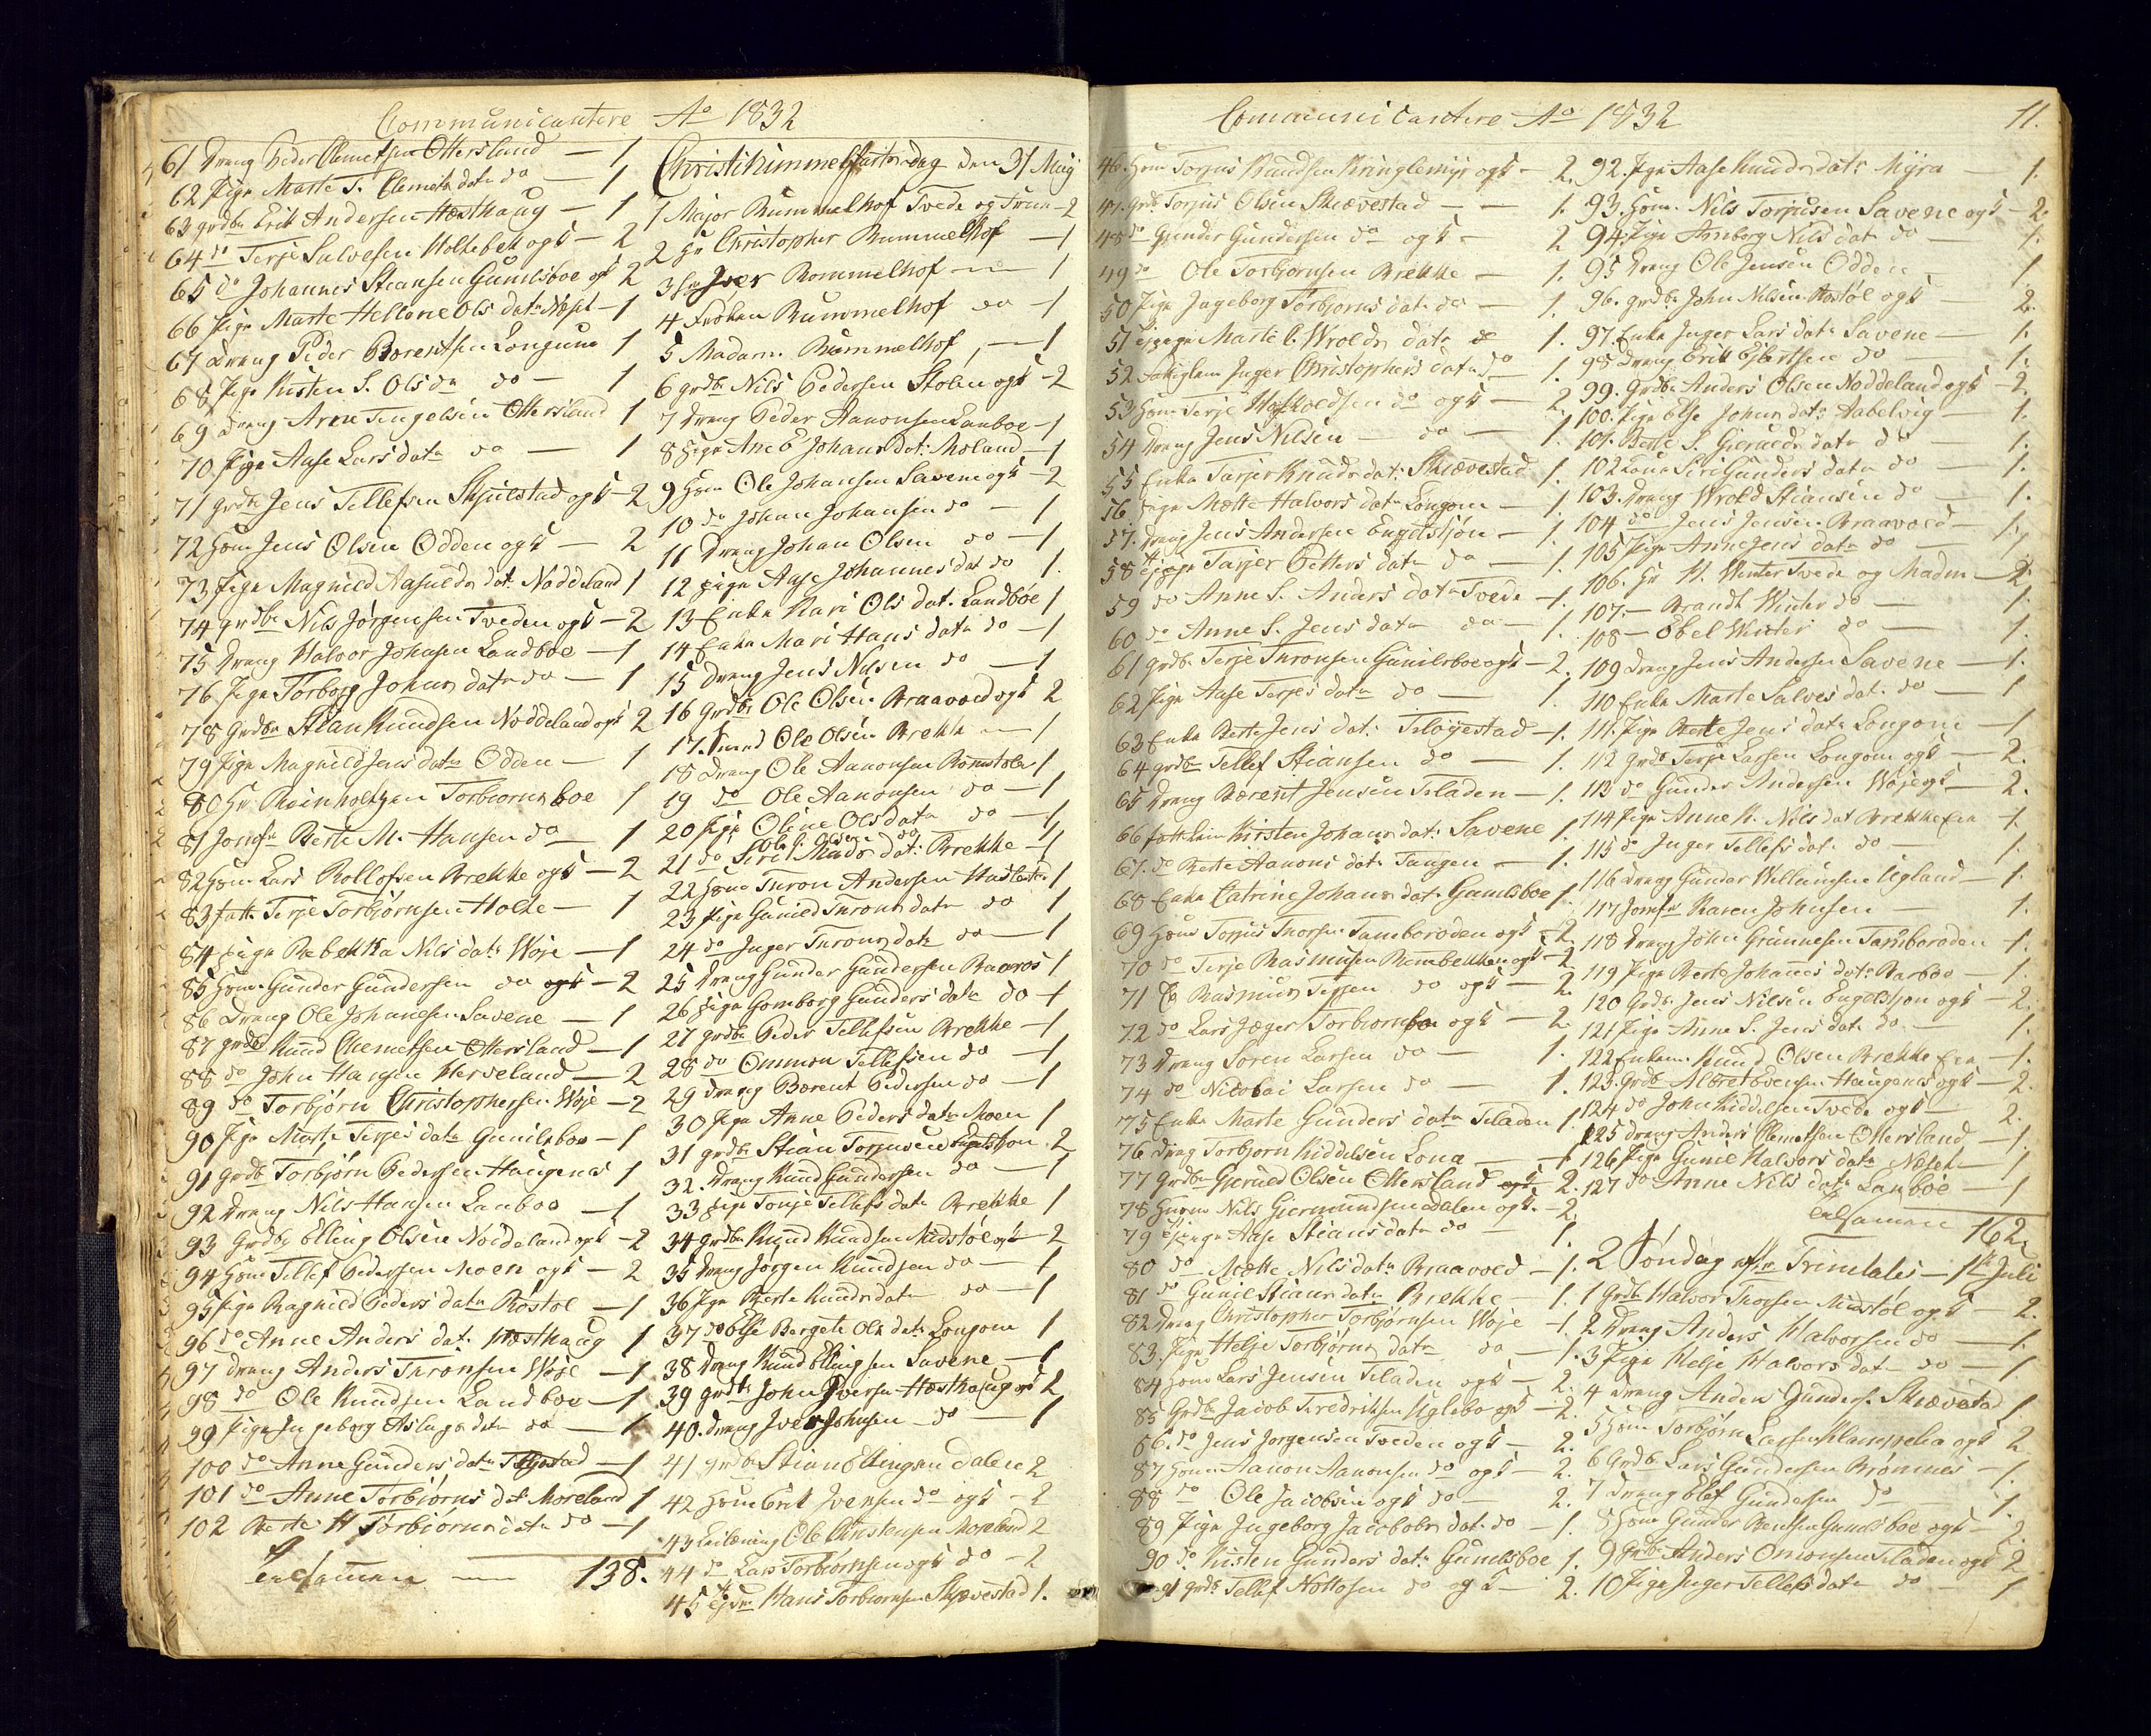 Communicantere Ao 1832
61 Drang Peder Clemetsen Ottersland — 1
62 Pige Marte T. Clemets datr do — 1
63 grdbr Erik Andersen Hæsthaug — 1
64 do Terje Salvesen Holtebek ogk — 2
65 do Johannes Stiansen Gunilsboe ogk 2
66 Pige Marte Hellene Ols datr Næset — 1
67 Drang Peder Borentsen Longum 1
68 Pige Kisten S. Ols da do — 1
69 Drang Arne Tengelsen Ottersland 1
70 Pige Aase Lars datr do — 1
71 grdbr Jens Tellefsen Skjulstad ogk — 2
72 Huus Jens Olsen Odden ogk — 2
73 Pige Magnild Aasulds datr Noddeland 1
74 grdbr Nils Jørgensen Tveden ogk — 2
75 Drang Halvor Johnsen Landboe — 1
76 Pige Torborg Johns datr do — 1
78 Grdbr Stian Knudsen Noddeland ogk 2
79 Pige Magnild Jens datr Odden — 1
80 Hr. Reinholtzen Torbiørnsboe 1
81 Jomfr Berte M. Hansen do — 1
82 Huus Lars Rollofsen Brekke ogk — 2
83 fatt. Terje Torbjørnsen Holte — 1
84 Pige Rebekka Nils datr Woje — 1
85 Huus Gunder Gundersen do ogk — 2
86 Drang Ole Johansen Savene — 1
87 grdbr Knud Clemetsen Ottersland — 1
88 do John Hansen Herveland — 2
89 do Torbjørn Christophersen Woje — 2
90 Pige Marte Terjes datr Gunilsboe — 1
91 Grdb Torbjørn Pedersen Haugenes 1
92 Drang Nils Hansen Lanboe — 1
93 Grdbr Elling Olsen Noddeland ogk — 2
94 Huus Tellef Pedersen Moen ogk — 2
95 Pige Ragnild Peders datr Røstøl — 1
96 do Anne Anders datr Hæsthaug 1
97 Drang Anders Tronsen Woje — 1
98 do Ole Knudsen Landboe — 1
99 Pige Ingeborg Aslags datr do — 1
100 do Anne Gunders datr — 1
101 do Anne Torbiørns dat Moreland 1
102 Berte H Torbiørns datr do — 1
138.
Christi himmelfartsdag den 31 Maij
1 Major Rummelhof Tvede og Frue — 2
2 Hr Christopher Rummelhof — 1
3 Hr Iver Rommelhof — 1
4 Frøken Rummelhof do — 1
5 Madam Rummelhof — 1
6 grdbr Nils Pedersen Stolen ogk — 2
7 Drang Peder Aanonsen Lanboe — 1
8 Pige Ane E Johans dat. Moland — 1
9 Huus Ole Johansen Savene ogk — 2
10 do Johan Johansen do — 1
11 Drang Johan Olsen do — 1
12 Pige Aase Johannes dat do 1.
13 Enke Kari Ols dat. Landbøe 1
14 Enke Mari Hans datr do — 1
15 Drang Jens Nilsen do — 1
16 Grdbr Ole Olsen Braavold ogk 2
17. Ole Olsen Brekk — 1
18 Drang Ole Aanonsen 1
19 do Ole Aanonsen do — 1
20 Pige Oline Ols datr do — 1
21 do Siri datr Brekke — 1
22 Huus Tron Andersen 1
23 Pige Gunild Trons datr do 1
24 do Inger Trons datr do — 1
25 Drang Gunder Gundersen Baaros 1
26 Pige Gomborg Gunders datr do — 1
27 grdbr Peder Tellefsen Brekke — 1
28 do Ommon Tellefsen do — 1
29 Drang Borent Pedersen do — 1
30 Pige Anne Peders datr Moen 1
31 grdbr Stian Torjusen 2
32. Drang Knud Gundersen do — 1
33 Pige Tonje Tellefs datr Brekke 1
34 grdbr Knud Knudsen Midstøl ogk — 2
35 Drang Jørgen Knudsen do — 1
36 Pige Berte Knuds datr do — 1
37 do Else Bergete Ols datr Longom 1
38 Drang Knud Ellingsen Savene — 1
39 grdbr John Iversen Hæsthaug ogk 2
40. Drang Iver Johnsen do — 1
41 grdbr Stian Ellingsen Dalen 2
42 Huus Erik Ivensen do ogk — 2
43 Ole Christensen Moreland 2
44 do Lars Torbiørnsen ogk do — 2
45 Hans Torbiørnsen Skjævestad 1.
Communicantere Ao 1832
11.
46. Huus Torjus Knudsen Kringlemyr ogk — 2.
47. Grdb Torjus Olsen Skiævestad — 1.
48 do Gunder Gundersen do ogk — 2
49 do Ole Torbjornsen Brekke — 1.
50 Pige Ingeborg Torbjorns datr do — 1.
51 Pige Marte C. Wrolds datr do 1.
52 Inger Christophers datr do 1.
53 Huus Terje Hoskoldsen do ogk — 2.
54 Drang Jens Nilsen — do — 1.
55 Enke Tarjer Knuds dat. Skiævestad 1.
56 Pige Mætte Halvors datr Longom — 1.
57. Drang Jens Andersen Engelskjøn — 1.
58 Pige Tarjer Petters datr do — 1.
59 do Anne S. Anders datr Tvede — 1.
60 do Anne S. Jens datr do — 1.
61 grdbr Terje Tronsen Gunilsboe ogk — 2.
62 Pige Aase Terjes datr do — 1.
63 Enke Berte Jens dat. — 1.
64 grdbr Tellef Stiansen do — 1.
65 Drang Borent Jensen Teladen — 1.
66 Kirsten Johans dat. Savene 1.
67. do Berte Aanons datr Tangen — 1.
68 Enke Catrine Johans dat. Gunilsboe 1
69 Huus Torjus Thorsen Tamberoden ogk — 2
70 do Terje Rasmusen ogk — 2
71 Rasmus Terjsen do ogk — 2.
72 do Lars Jæger Torbiornsboe ogk — 2
73 Drang Soren Larsen do — 1.
74 do Nicolai Larsen do — 1.
75 Enke Marte Gunders datr Teladen 1.
76 Drang Torbjorn Kiddelsen Lona — 1
77 Grdbr Gjeruld Olsen Ottersland ogk — 2.
78 Huus Nils Giermundsen Dalen ogk. — 2
79 Pige Aase Stians datr do — 1.
80 do Mætte Nils datr Braavold — 1.
81 do Gunil Stians datr Brekke — 1.
82 Drang Christopher Torbjørnsen Woje — 1.
83. Pige Helje Torbjørns datr do — 1.
84 Huus Lars Jensen Teladen ogk — 2.
85 Grdbr Jacob Fredriksen Uglebo ogk — 2.
86. do Jens Jorgensen Tveden ogk — 2.
87 Huus Aanon Aanonsen do ogk — 2.
88 do Ole Jacobsen ogk do — 2.
89 Pige Ingeborg Jacobs dat. do — 1.
90 do Kisten Gunders datr Gunilsboe 1.
91 grdbr Tellef Nottosen do ogk — 2.
92. Pige Aase Knuds datr Myra — 1.
93. Huus. Nils Torjusen Savene ogk — 2.
94. Pige Amborg Nils datr do — 1.
95 Drang Ole Jensen Odden 1
96. grdbr John Nilsen Røstøl ogk — 2.
97. Enke Inger Lars datr Savene — 1.
98 Drang Erik Ejbertsen do — 1.
99. Grdbr Anders Olsen Noddeland ogk — 2.
100. Pige Else Johns datr Aabelvig — 1.
101. Berte S. Gieruldsdatr do — 1.
102 Siri Gunders datr do — 1.
103. Drang Wrold Stiansen do — 1.
104 do Jens Jensen Braavold — 1.
105 Pige Anne Jens datr do — 1
106. Hr H. Winter Tvede og Madm — 2.
107. — Brandt Winter do — 1.
108 — Obel Winter do — 1.
109 Drang Jens Andersen Savene — 1.
110 Enke Marte Salves dat. do — 1
111. Pige Berte Jens datr Longom — 1
112 grdbr Terje Larsen Longom ogk — 2.
113 do Gunder Andersen Woje ogk — 2.
114 Pige Anne K. Nils dat Brekke — 1.
115 do Inger Tellefs datr do — 1.
116 Drang Gunder Willumsen Ugland — 1.
117 Jomfr Karen Johnsen — 1.
118 Drang John Grunnesen Tamberoden — 1.
119 Pige Berte Johanes datr Barboe — 1.
120 Grdbr Jens Nilsen Engelskjon ogk — 2.
121 Pige Anne S. Jens datr do — 1.
122 Knud Olsen Brekke — 1.
123. Grdbr Albret Evensen Haugenes ogk — 2.
124 do John Kiddelsen Tvede ogk — 2.
125 Drang Anders Clemetsen Ottersland — 1.
126 Pige Gunil Halvors datr Næset — 1
127 do Anne Nils datr Lanboe — 1
162
2 Søndag efter Trinitatis — 1ste Juli
1 Grdb Halvor Thorsen Midstøl ogk — 2.
2 Drang Anders Halvorsen do — 1.
3 Pige Helje Halvors datr do — 1
4 Drang Anders Gunders. Skiævestad 1
5 Huus Torbjørn Larsen Klampelia ogk 2
6 Grdb. Lars Gundersen Brønnes — 1.
7 Drang Elef Gundersen do — 1.
8 Huus Gunder Bentsen Gunilsboe ogk — 2.
9 Grdbr Anders Omonsen Teladen ogk 2
10 Pige Inger Tellefs datr do — 1